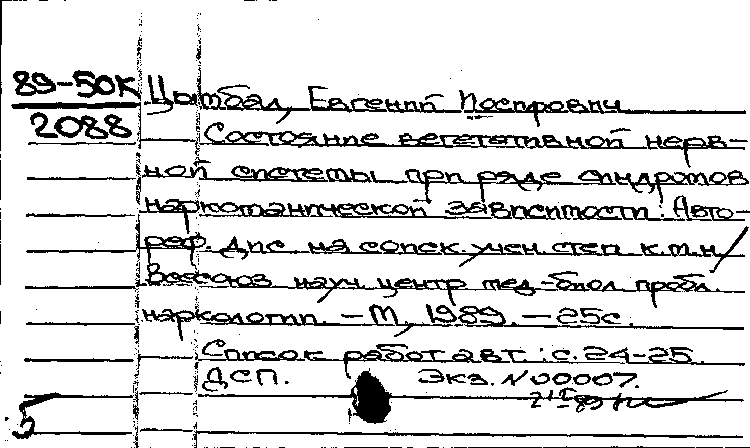 89-50К
2088
Цымбал, Евгений
Состояние вегетативной нерв-
ной системы при ряде синдромов
наркоманической зависимости: Авто-
реф. дис. на соиск. учен. степ. к.м.н/
Всесоюз науч. центр мед-биол пробл.
наркологии. - М, 1989. - 25с.
Список работ авт.: с. 24-25.
ДСП. Экз. N 00007.
5